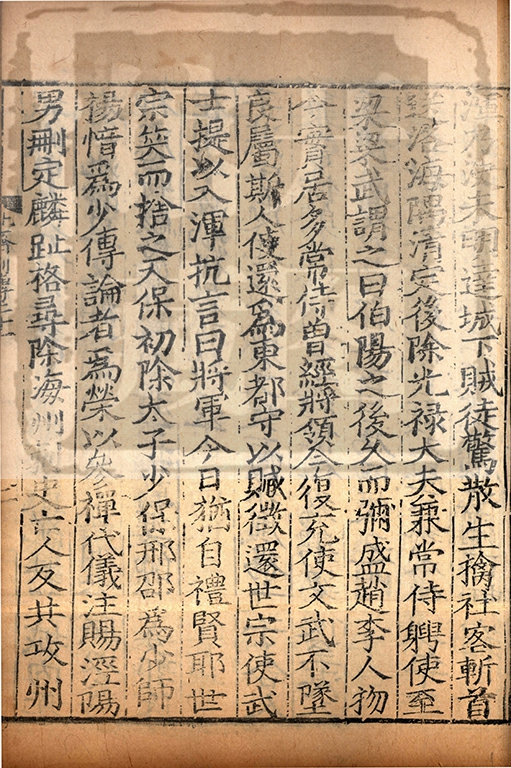 渾乃決未明達城下賊徒驚散生擒社客斬首
送洛海隅清定後除光祿大夫兼常侍聘使至
梁梁武謂之曰伯陽之後久而彌盛趙李人物
今實居多常侍曾經將領今復充使文武不墜
良屬斯人使還為東都守以贓徵還世宗使武
士提以入渾抗言曰將軍今日猶自禮賢耶世
宗笑而捨之天保初除太子少保邢邵為少師
楊愔為少傅論者為榮以參禪代儀注賜涇陽
男刪定麟趾格尋除海州刺史人反共攻州